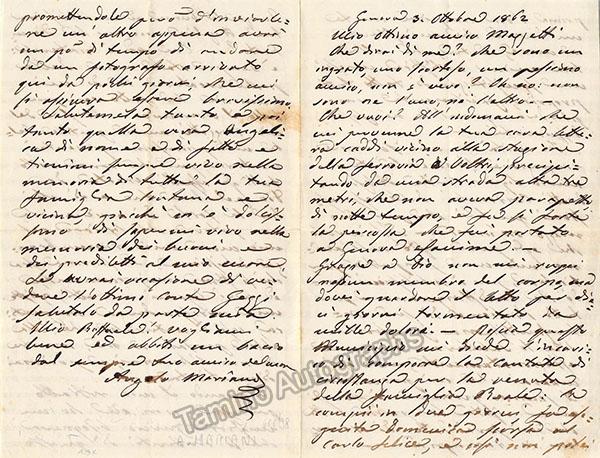 promettendole però d'inviarle-
ne un'altro appena avrò
un po' di tempo di andare
da un fotografo arrivato
qui da pochi giorni, che mi
si assicura essere bravissimo.
Salutamela tanto e poi
tanto quella vera Angeli-
ca di nome e di fatto e
tienimi sempre vivo nella
memoria di tutta la tua
famiglia lontana e
vicina, giacchè m'è dolcis-
simo di sapermi vivo nella
memoria dei buoni e
dei prediletti al mio cuore.
Se avrai occasione di ve-
dere l'ottimo conte
salutalo da parte mia
Mio vogliami
bene ed abbiti un bacio
dal sempre tuo amico del cuore
Angelo Mariani
Genova 3. Ottobre 1862
Mio ottimo amico Masetti
Che dirai di me? che sono un
ingrato, uno scortese, un pessimo
amico, non è vero? Eh no: non
sono nè l'uno, nè l'altro. —
Che vuoi? All'indomani che
mi pervenne la tua cara lette-
ra caddi vicino alla stazione
della ferrovia di Voltri, precipi-
tando da una strada alta tre
metri, che non aveva parapetto
di notte tempo, e fu sì forte
la percossa che fui portato
a Genova esanime. —
Grazie a Dio non mi ruppi
nessun membro del corpo, ma
dovei guardare il letto per di-
ci giorni tormentato da
mille dolori. — Poscia questo
Municipio mi diede l'incari-
co comporre la Cantata di
circostanza per la venuta
della famiglia Reale: la
composi in due giorni fu ese-
guita domenica scorsa al
Carlo Felice, e così non potei
Tamino Autographs